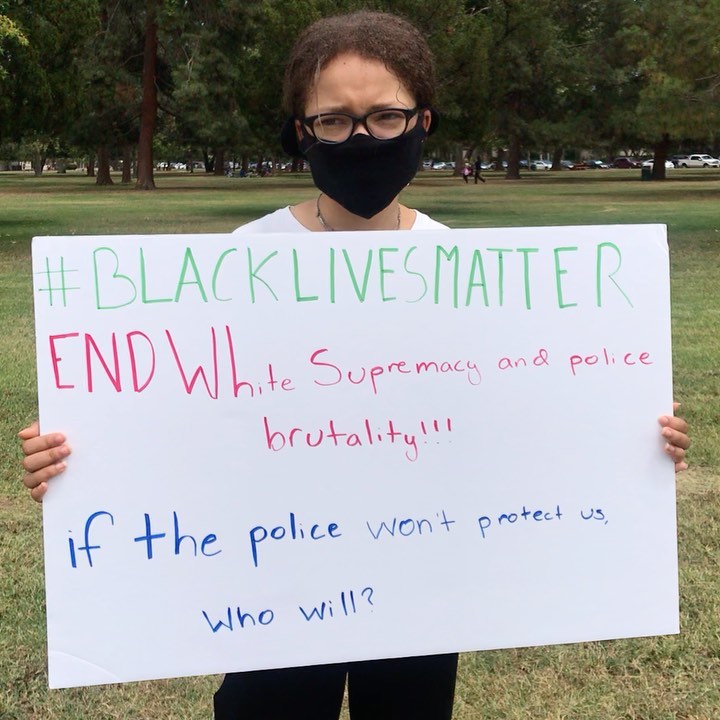 #BLACKLIVESMATTER
END White Supremacy and police
brutality!!!
if the police won't protect us,
Who will?